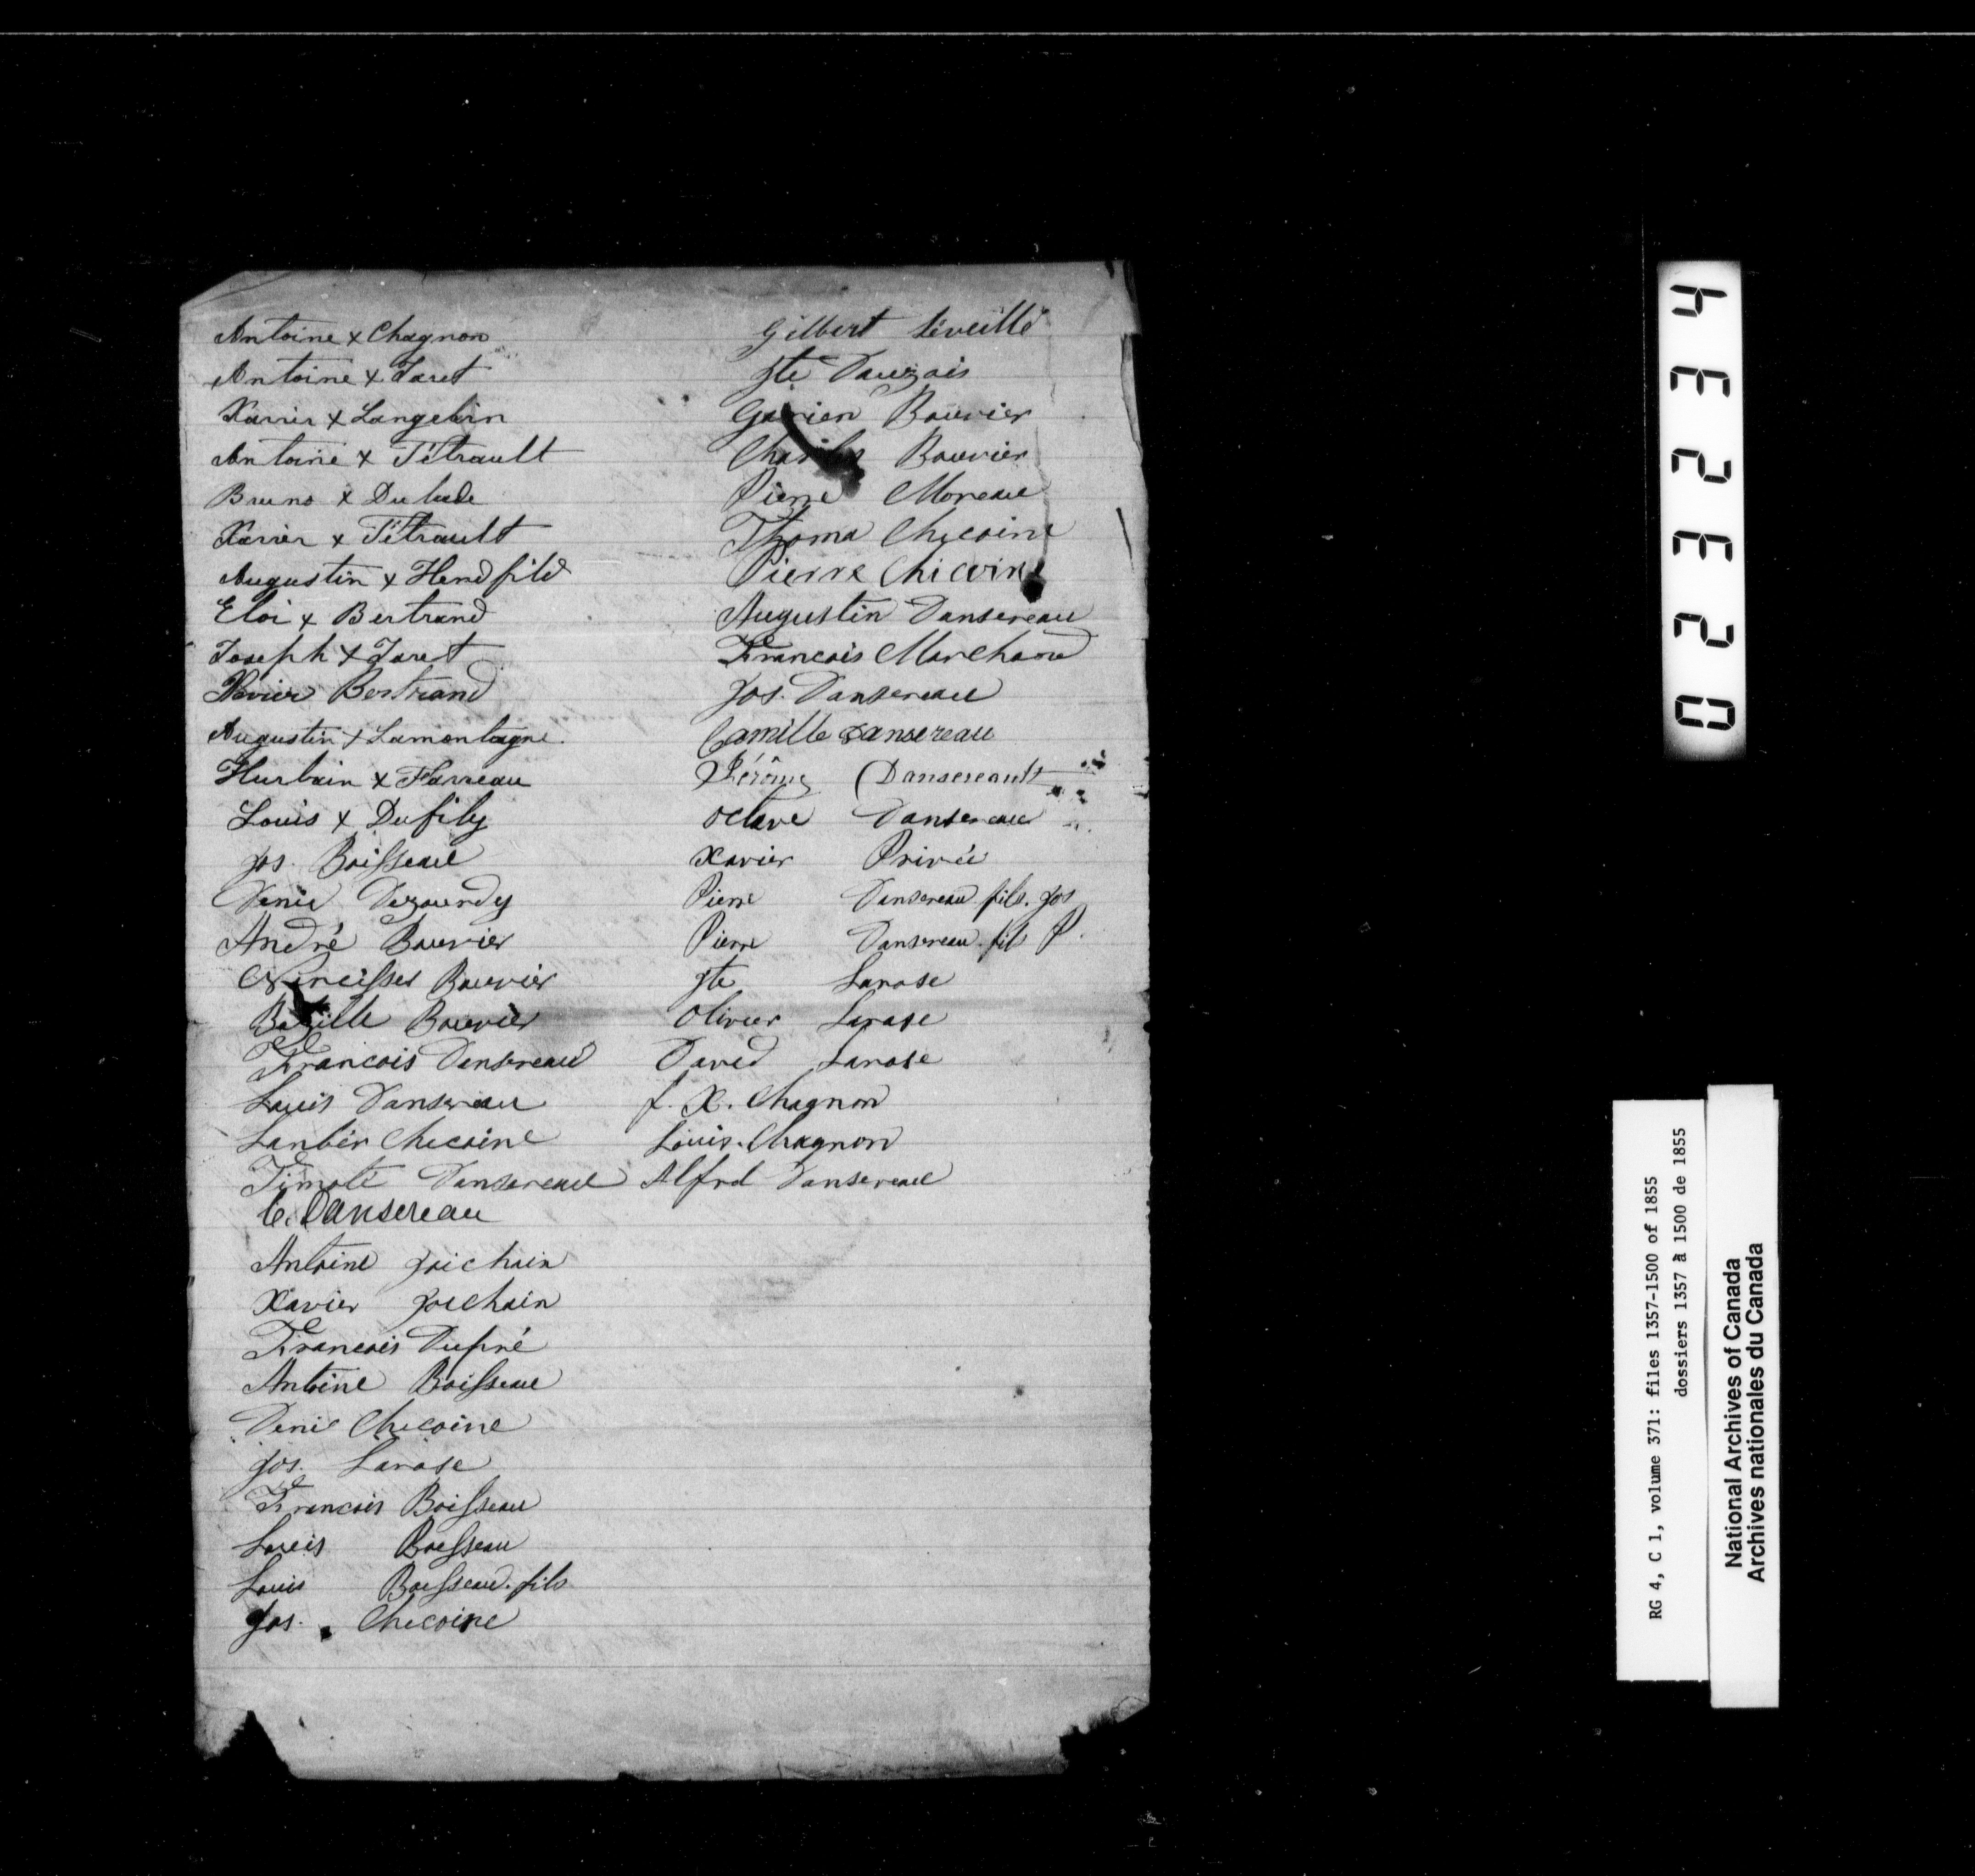 Antoine x Chagnon
Antoine x Jaret
Xavier x Langevin
Antoine x Tétrault
Bruno x Dulude
Xavier x Tétrault
Augustin x Hendfild
Eloi x Bertrand
Joseph x Jaret
Xavier Bertrand
Augustin x Lamontagne.
Hurbain x Farreau
Louis x Dufily
Jos. Boisseau
Denis Dezourdy
André Bouvier
Narcisses Bouvier
Bazille Bouvier
Francois Dansereau
Louis Dansereau
Lanbér Chicoine
Timoté Dansereau
C. Dansereau
Antoine Joichain
Xavier Joichain
Francois Dupré
Antoine Boisseau
Denis Chicoine
Jos. Larose
Francois Boisseau
Louis Boisseau
Louis Boisseau. fils
Jos. Chicoine
Gilbert Léveillé
Jte Dauzois
Bouvier
Charles Bouvier
Pierre Moreau
Thoma Chicoine
Pierre Chicoine
Augustin Dansereau
Francois Marchand
Jos. Dansereau
Camille Dansereau
Jérôme Dansereault
octave Dansereau
Xavier Privée
Pierre Dansereau fils. Jos
Pierre Dansereau. fils P.
Jte Larose
Olivier Larose
David Larose
f. X. Chagnon
Louis. Chagnon
Alfred Dansereau
02323 4
RG 4, C 1, volume 371: files 1357-1500 of 1855
dossiers 1357 à 1500 de 1855
National Archives of Canada
Archives nationales du Canada